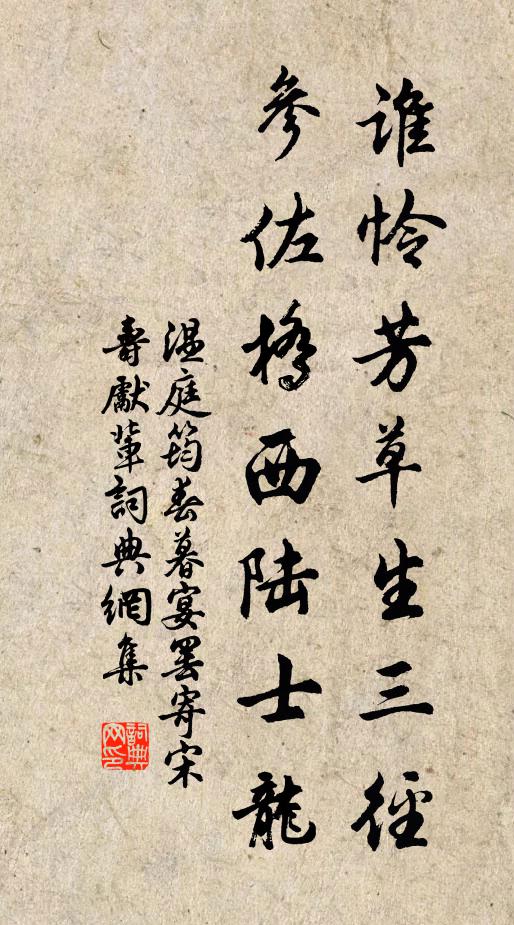 誰憐芳草生三徑
參佐橋西陸士龍
溫庭筠春暮宴罷寄宋
壽獻輩詞典網集
詞典网印